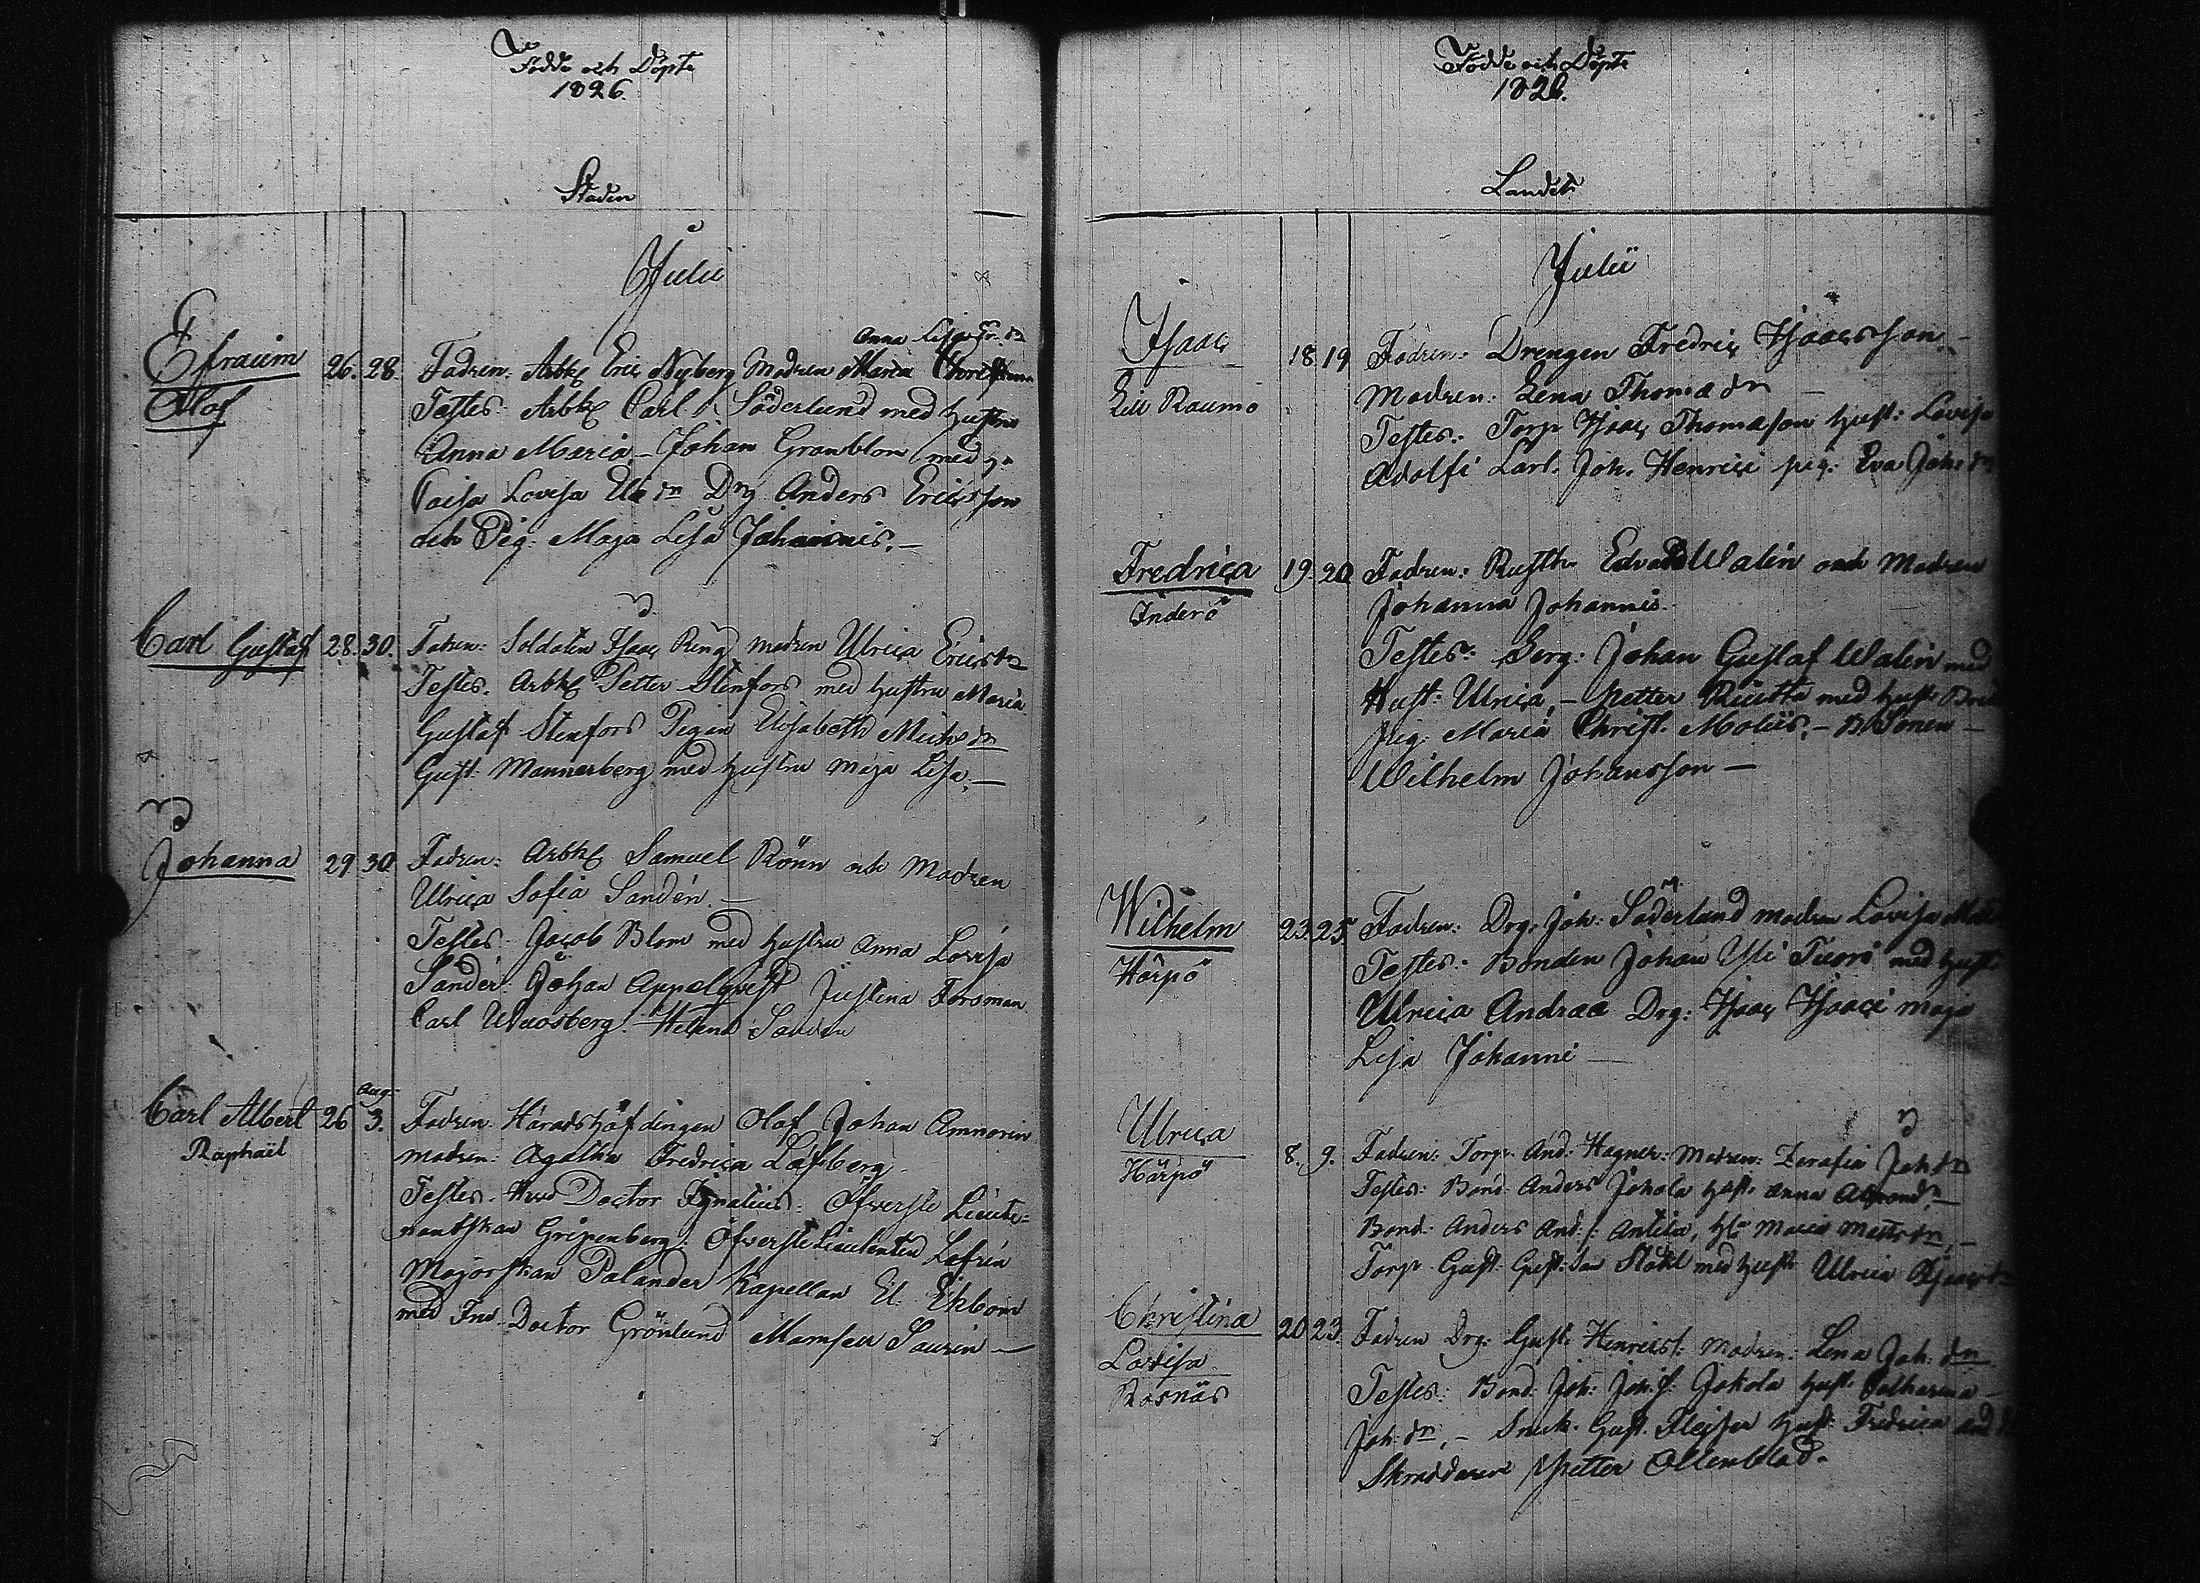 Födde och Döpte
1826.
Staden
Julii
Efraim 26. 28. Fadren: Arbk Eric Nyberg Modren Maria Christina
Anna Lisa Er. dr
Olof Testes Arbk Carl Söderlund med hustru
Anna Maria - Johan Granblom med h.
Caisa Lovisa dr Drg Anders Ericsson
och Pig. Maja Lisa Johannis. -
Carl Gustaf 28. 30. Fadren: Soldaten Isaac Ring modren Ulrica Ericsdr
Testes. Arbk Petter Stenfors med hustru Maria
Gustaf Stenfors Pigan Elisabeth Michs dr
Gust. Mannerberg med hustru Maja Lisa. -
Johanna 29 30 Fadren: Arbk Samuel Rönn och Modren
Ulrica Sofia Sandén. -
Testes: Jacob Blom med hustru Anna Lovisa
Sandér. Johan Appelqvist Justina Forsman
Carl Helena
Aug.
Carl Albert 26 3. Fadren. Häradshöfdingen Olof Johan Amnorin
Raphaël modren: Agatha Fredrica Löfberg.
Testes. Herr Doctor Ignatius: Öfverste Lieute-
nantskan Gripenberg: Öfverste Lieutenten Lofrén
Majorskan Polander Kapellan El. Ekbom
med Fru Doctor Grönlund Mamsell Saurén -
Födde och Döpte
1826.
Landet
Julii
Isaac 18 19 Fadren: Drengen Fredric Isaacsson. -
Raumo Modren: Lena Thomædr -
Testes: Torp Isaac Thomæson hust: Lovisa
Adolfi Carl. Joh. Henrici pig: Eva Joh: dr
Fredrica 19. 20 Fadren: Rusth. Edvard Walin och Modren
Inderö Johanna Johannis.
Testes: Serg: Johan Gustaf Walin med
Hust: Ulrica, - Petter med hust:
Pig. Maria Christ. - B. Sonen -
Wilhelm Johansson -
Wilhelm 23. 25. Fadren: Drg: Joh: Söderlund modren Lovisa
Härpö Testes: Bonden Johan Tuori med hust
Ulrica Andræ Drg: Isaac Isaaci Maja
Lisa Johanni -
Ulrica 8. 9. Fadren: Torp. And: Hagner: Modren: Serafia Johdr
Härpö Testes: Bond: Anders Jokola hust: Anna -
Bond: Anders And: s: Antila, Maria Mattsdr, -
Torp. Gust: Gust: Son Ståhl med hust: Ulrica Isaacsdr
Christina 20 23. Fadren Drg: Gust: Henrics: Modren: Lena Joh: dr
Lovisa Testes: Bond: Joh: Joh: s: Jokola hust: Catharina -
Rosnäs Joh: dr. - Snick. Gust. hust: Fredrica
Skraddaren Petter Ollenblad.